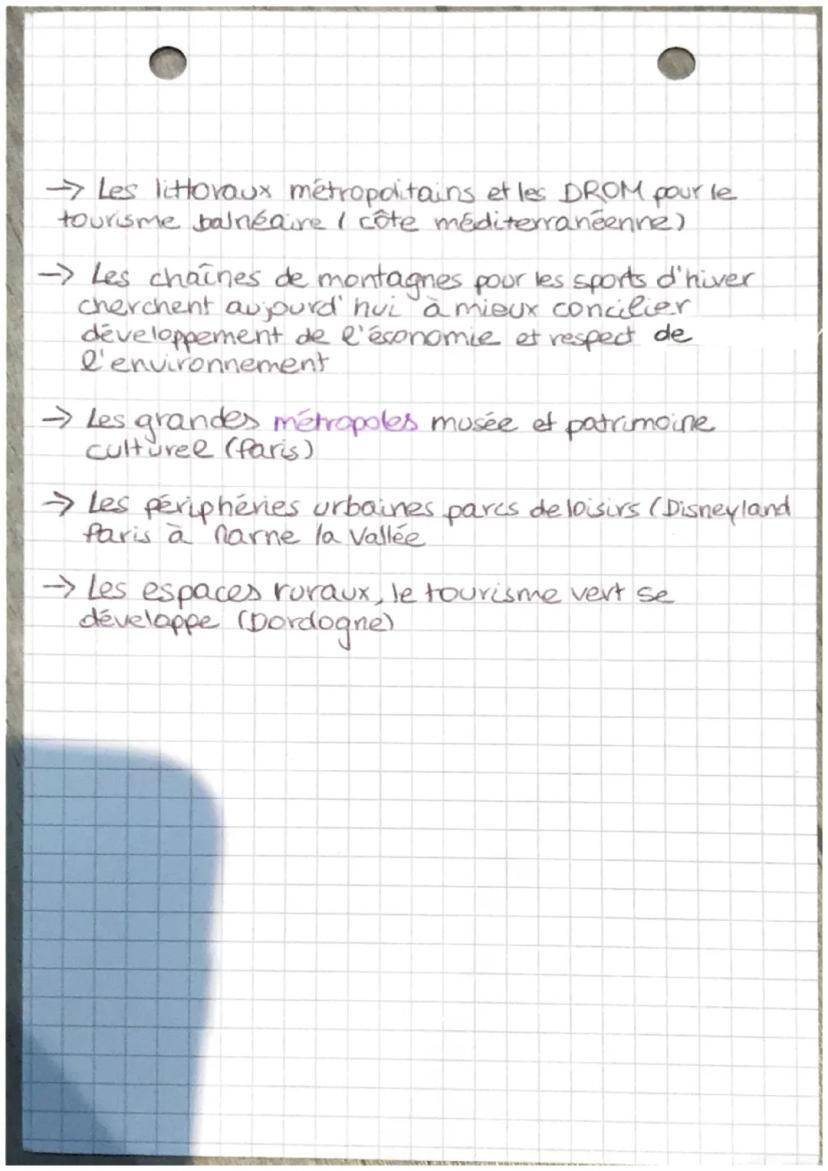 → Les littoraux métropolitains et les DROM pour le
tourisme balnéaire ( côte méditerranéenne)
→ Les chaînes de montagnes pour les sports d'hiver
cherchent aujourd'hui à mieux concilier
développement de l'économie et respect de
l'environnement
→ Les grandes métropoles musée et patrimoine
culturel (Paris)
→ Les périphéries urbaines parcs de loisirs (Disneyland
Paris à Marne la Vallée
→ Les espaces ruraux, le tourisme vert se
développe (Dordogne)